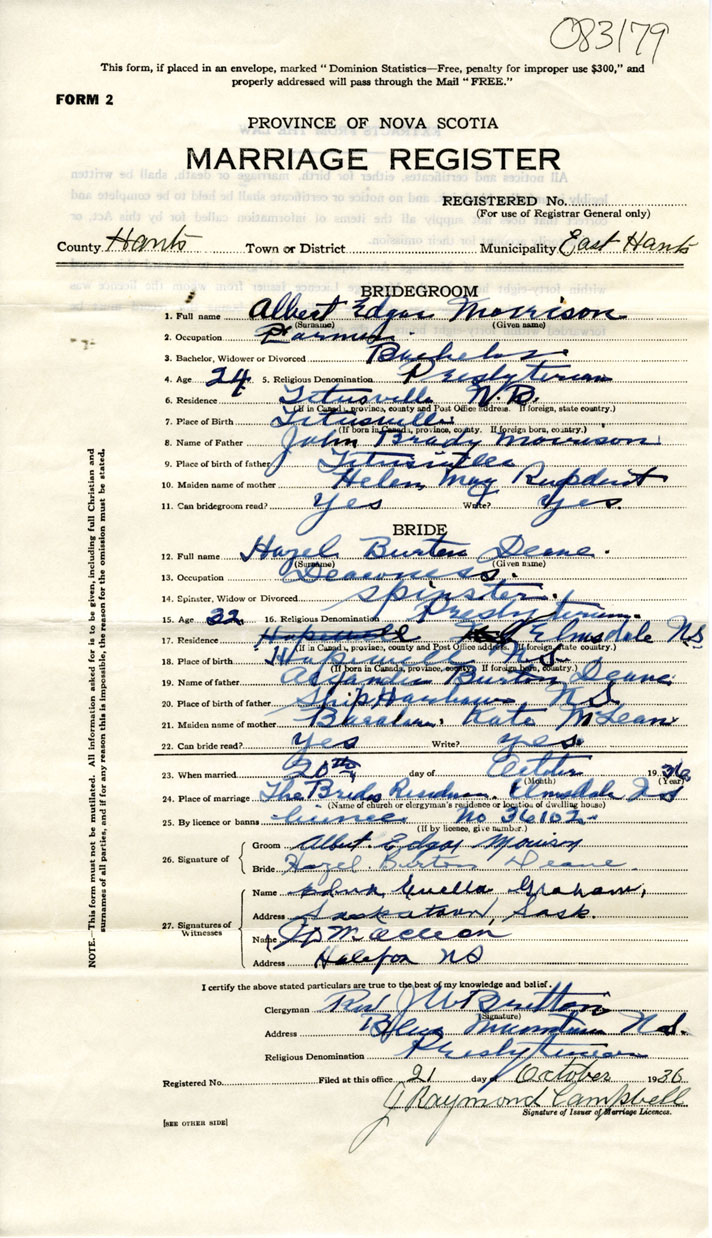 083179
This form, if placed in an envelope, marked "Dominion Statistics—Free, penalty for improper use $300," and
properly addressed will pass through the Mail "FREE."
FORM 2
PROVINCE OF NOVA SCOTIA
MARRIAGE REGISTER
REGISTERED No.
(For use of Registrar General only)
County Hants Town or District Municipality East Hants
BRIDEGROOM
1. Full name Albert Edgar Morrison
(Surname) (Given name)
2. Occupation Farmer
3. Bachelor, Widower or Divorced Bachelor
4. Age 24 5. Religious Denomination Presbyterian
6. Residence Titusville N.B.
(If in Canada, province, county and Post Office address. If foreign, state country.)
7. Place of Birth Titusville
(If born in Canada, province, county. If foreign born, country.)
8. Name of Father John Brady Morrison
9. Place of birth of father Titusville
10. Maiden name of mother Helen May
11. Can bridegroom read? Yes Write? Yes.
BRIDE
12. Full name Hazel Burton Deane.
(Surname) (Given name)
13. Occupation
14. Spinster, Widow or Divorced Spinster.
15. Age 32 16. Religious Denomination Presbyterian.
17. Residence Hopewell N.S. Elmsdale NS
(If in Canada, province, county and Post Office address. If foreign, state country.)
18. Place of birth Hopewell N.S.
(If born in Canada, province, county. If foreign born, country.)
19. Name of father Burton Deane
20. Place of birth of father Ship Harbour N.S.
21. Maiden name of mother Kate McLean
22. Can bride read? Yes Write? Yes.
23. When married 20th day of October 1936
(Month) (Year)
24. Place of marriage The Brides Residence. Elmsdale N S
(Name of church or clergyman's residence or location of dwelling house)
25. By licence or banns licence No 36102-
(If by licence, give number.)
26. Signature of
Groom Albert Edgar Morrison
Bride Hazel Burton Deane.
27. Signatures of Witnesses
Name Luella Graham,
Address Saskatoon, Sask.
Name Maclean
Address Halifax NS
I certify the above stated particulars are true to the best of my knowledge and belief.
Clergyman Rev J W Britton
(Signature)
Address Blue Mountain N.S.
Religious Denomination Presbyterian
Registered No. Filed at this office 21 day of October 1936
J Raymond Campbell
Signature of Issuer of Marriage Licences.
[SEE OTHER SIDE]
NOTE.—This form must not be mutilated. All information asked for is to be given, including full Christian and
surnames of all parties, and if for any reason this is impossible, the reason for the omission must be stated.